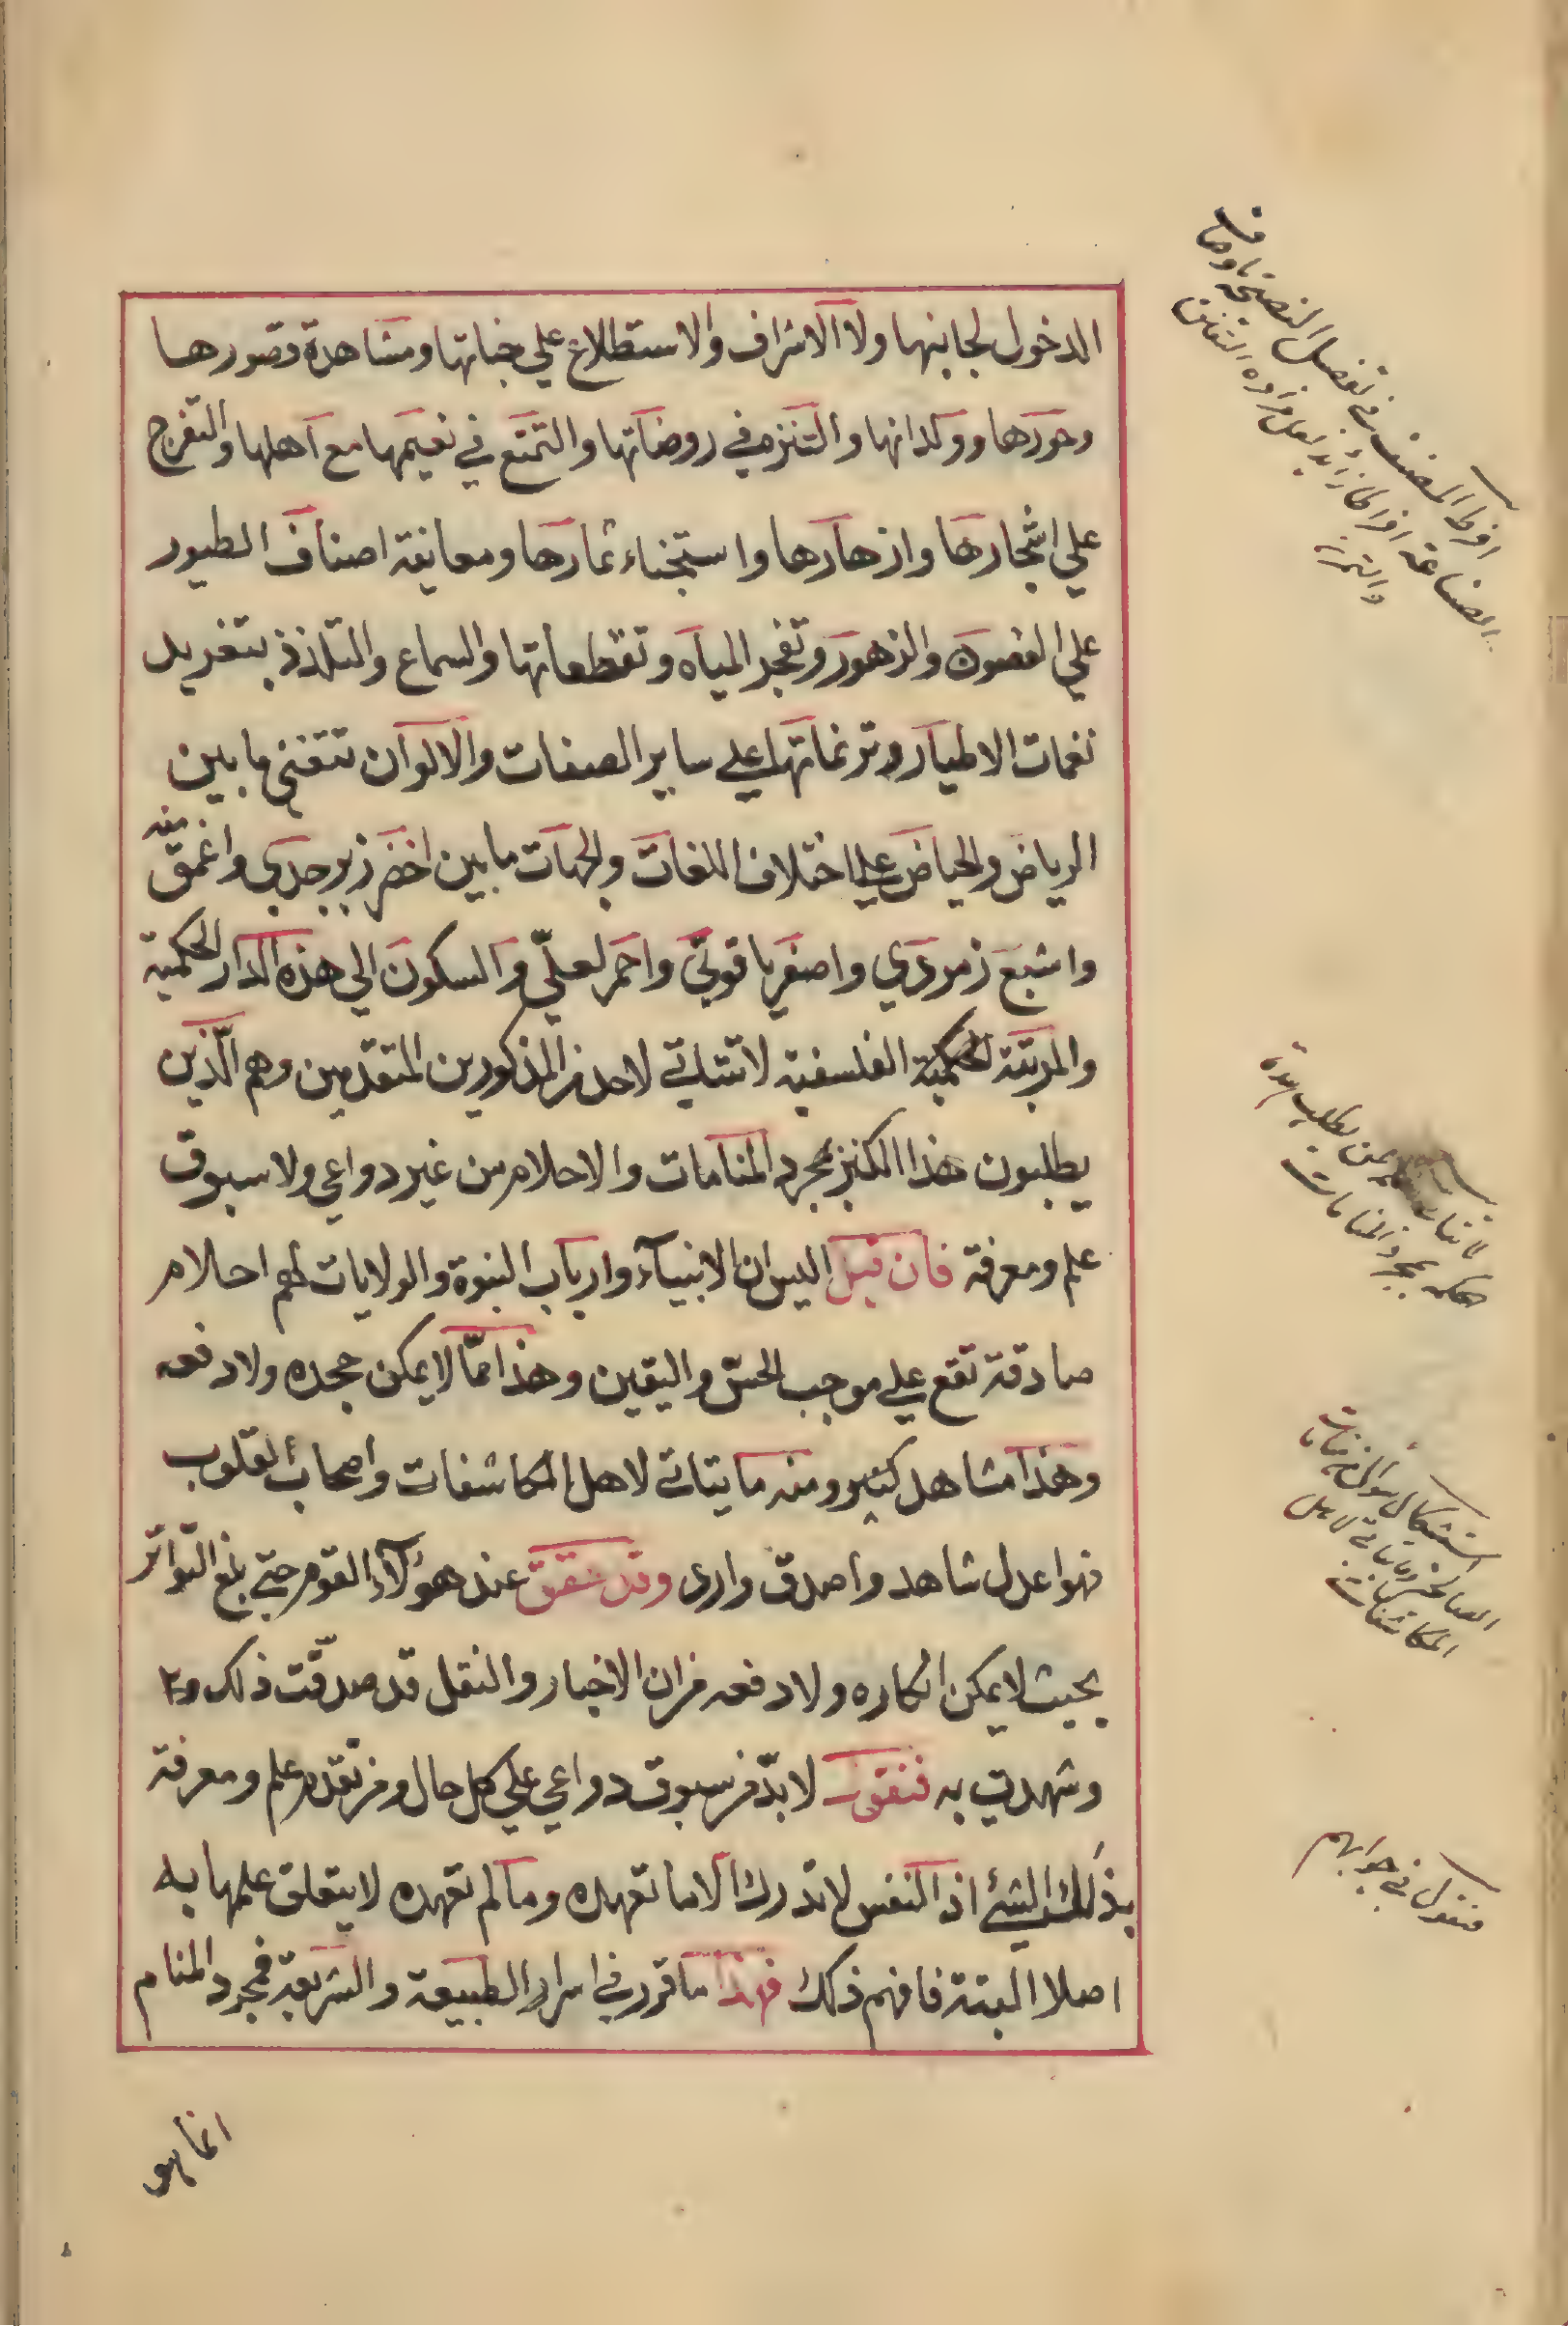 الدخول لجانبها ولا الاشراف والاستطلاع علي جنباتها ومشاهدة قصورها
وحورها وولدانها والتنزه في روضاتها والتمتع في نعيمها مع اهلها والتفرج
علي اشجارها وازهارها واستجناء ثمارها ومعاينة اصناف الطيور
علي الغصون والزهور وتفجر المياه وتقطعاتها والسماع والتلذذ بتغريد
نغمات الاطيار وترنماتها علي ساير الصفات والالوان تتغني ما بين
الرياض والحياض علي اختلاف اللغات والجهات ما بين اخضر زبرجدي واغمق منه
واشبع زمردي واصفر ياقوتي واحمر لعلّي والسكون الي هذه الدار الحكمية
والمرتبة الحكمية الفلسفية لا تتاتي لاحد من المذكورين المتقدمين وهم الّذين
يطلبون هذا الكنز بمجرد المنامات والاحلام من غير دواعي ولا سبوق
علم ومعرفة فان قيل اليس ان الانبيآء وارباب النبوة والولايات لهم احلام
صادقة تقع علي موجب الحسّ واليقين وهذا ممّا لا يمكن جحده ولا دفعه
وهذا مشاهد كثير ومنه ما يتاتي لاهل المكاشفات واصحاب القلوب
فهو اعدل شاهد واصدق وارى وقد تحقق عند هؤلآء القوم حتي بلغ التّواتر
بحيث لا يمكن انكاره ولا دفعه من ان الاخبار والنقل قد صدقّت ذلك
وشهدت به فنقول لا بدّ من سبوق دواعي علي كل حال ومن تقدم علم ومعرفة
بذلك الشئ اذ النفس لا تدرك الا ما تعهده وما لم تعهده لا يتعلق علمها به
اصلا البتة فافهم ذلك فهذا ما قرر في اسرار الطبيعة والشريعة فمجرد المنام
انما هو
افراط المصنف في تفصيل النصيحة
الصناعة افراطا زائد لعل مراده
والتمرن
لمن يطلب هذه
بمجرد المنامات
استشكال سوال منامات
الصالحين وما يتاتي لاهل
المكاشفات
فنقول في جوابهم